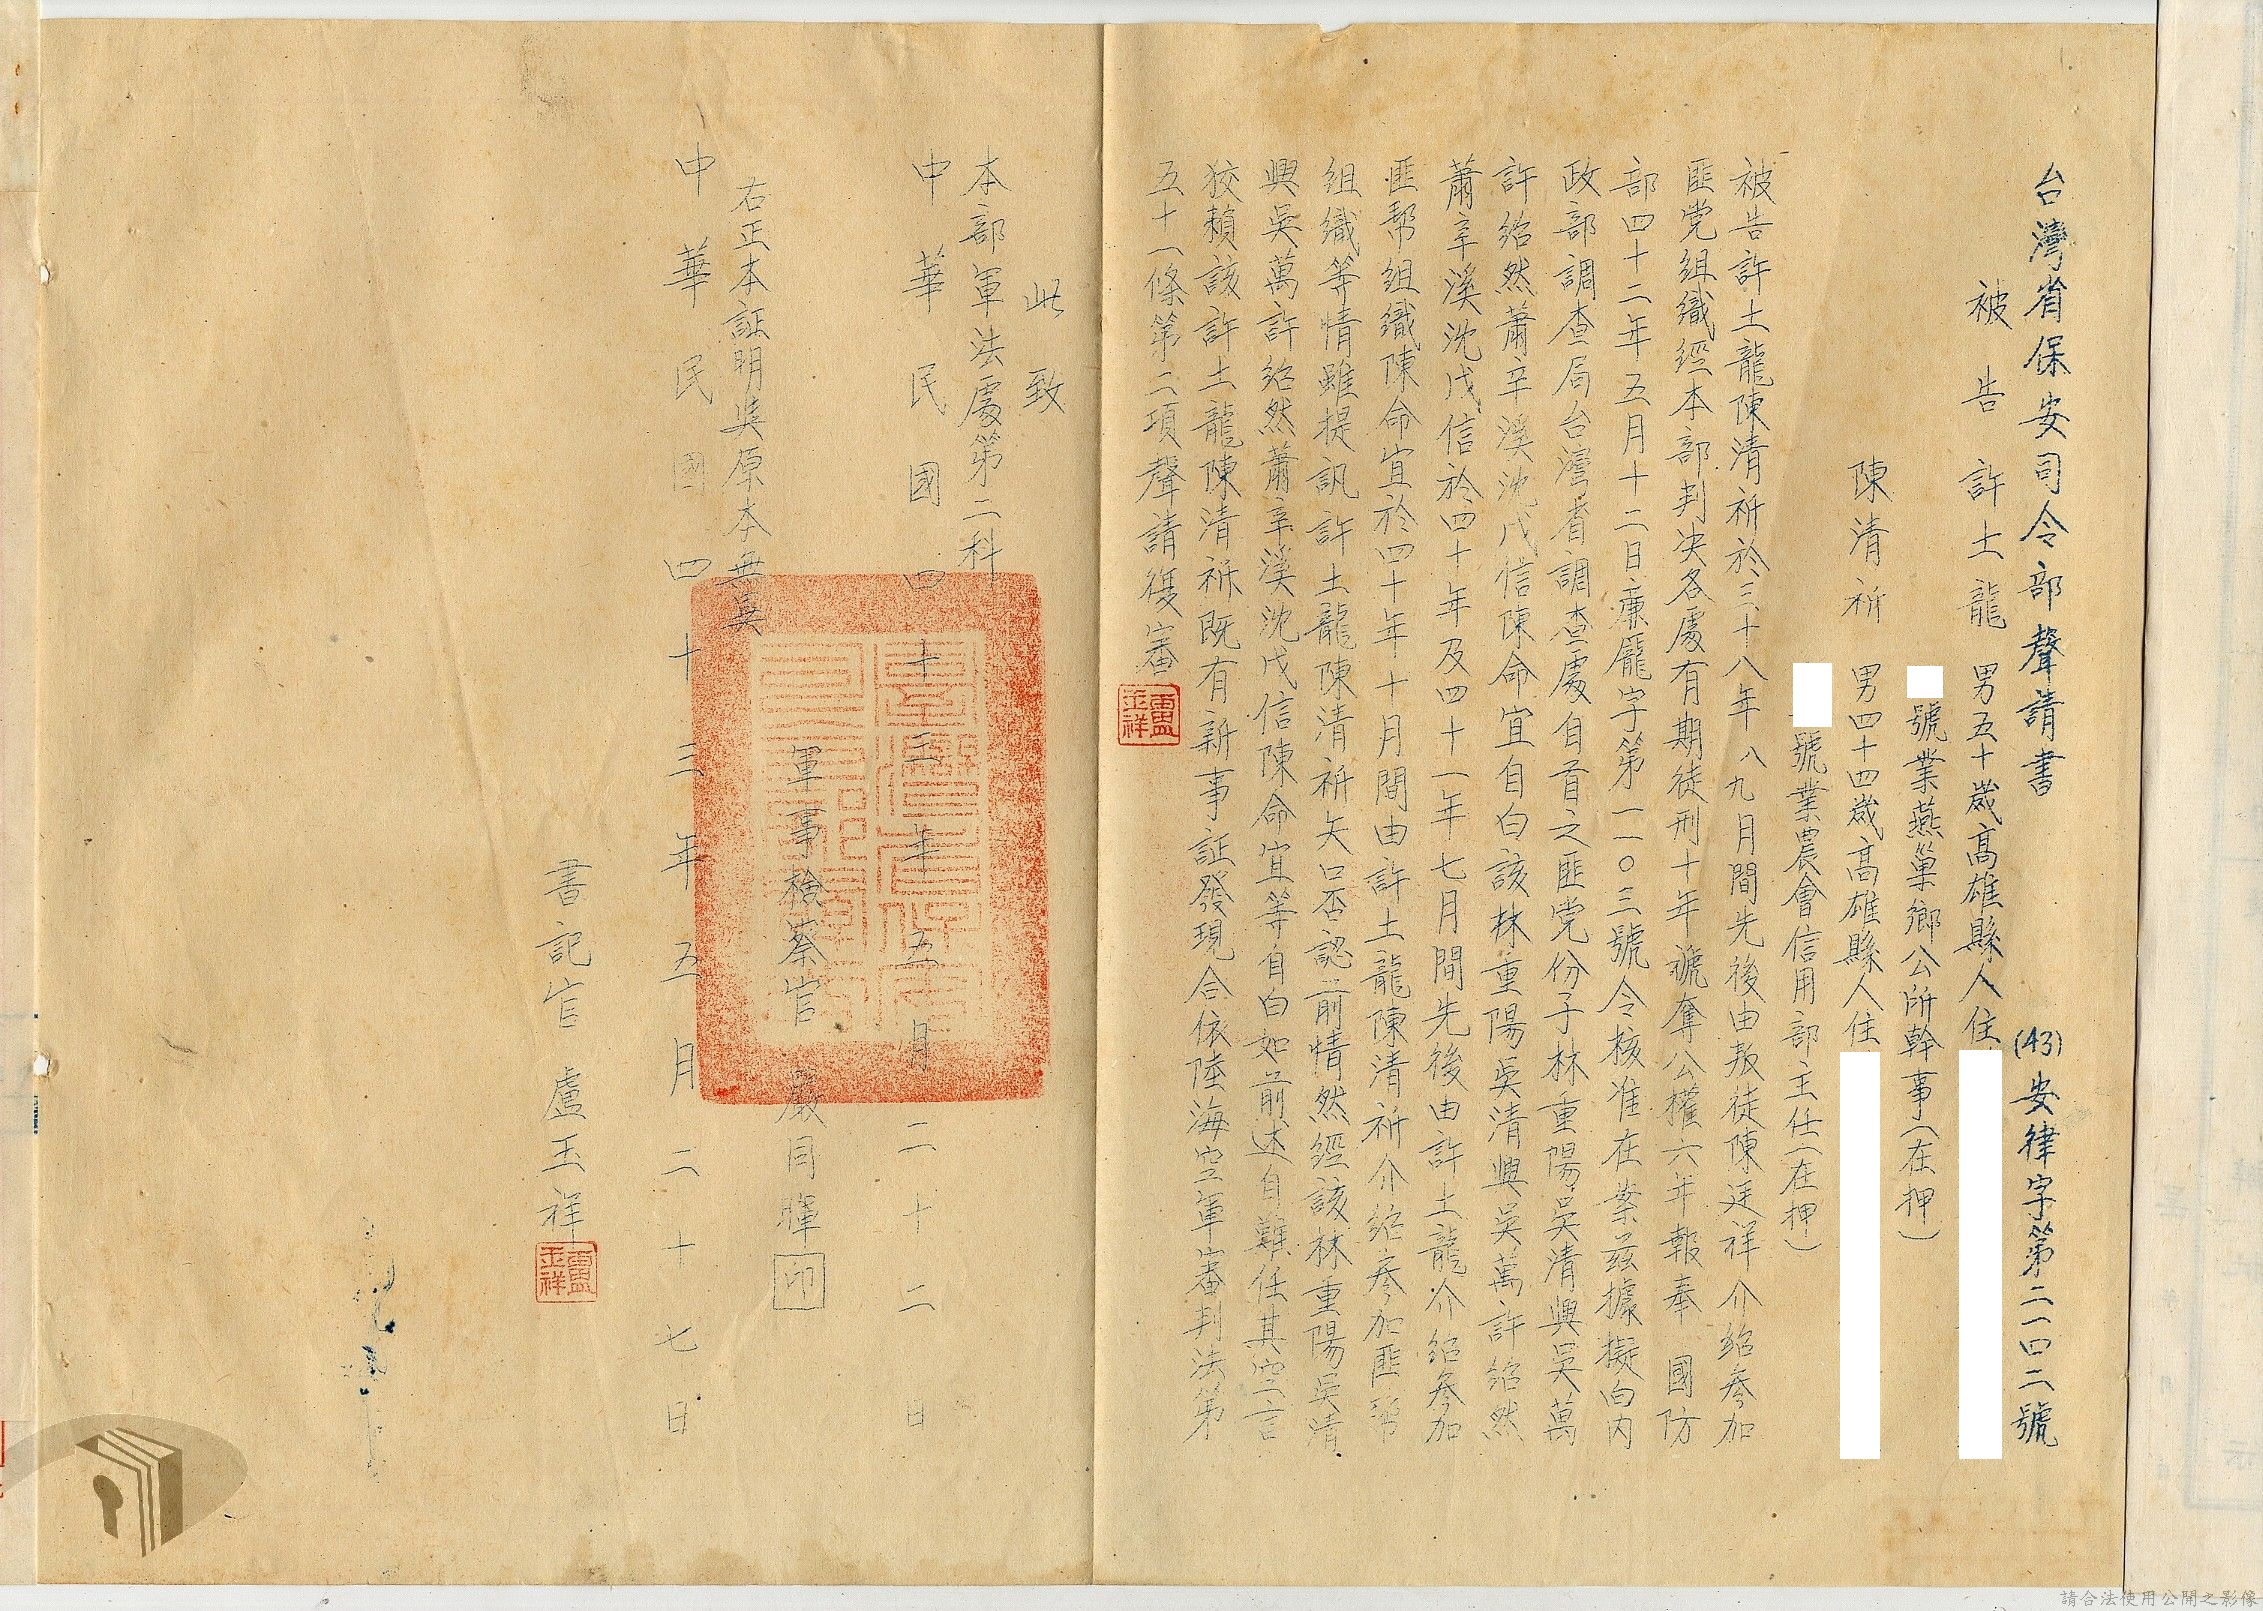 台灣省保安司令部聲請書 (43)安律字第二一四二號
被告 許土龍 男五十歲高雄縣人住
號業燕巢鄉公所幹事(在押)
陳清祈 男四十四歲高雄縣人住
號業農會信用部主任(在押)
被告許土龍陳清祈於三十八年八九月間先後由叛徒陳廷祥介紹參加
匪党組織經本部判决各處有期徒刑十年褫奪公權六年報奉 國防
部四十二年五月十二日廉龐字第一一〇三號令核准在案茲據擬向內
政部調查局台灣省調查處自首之匪党份子林重陽吳清興吳萬
許紹然蕭辛溪沈戊信陳命宜自白該林重陽吳清興吳萬許紹然
蕭辛溪沈戊信於四十年及四十一年七月間先後由許土龍介紹參加
匪幇組織陳命宜於四十年十月間由許土龍陳清祈介紹參加匪幇
組織等情雖提訊許土龍陳清祈矢口否認前情然經該林重陽吳清
興吳萬許紹然蕭辛溪沈戊信陳命宜等自白如前述自難任其空言
狡賴該許土龍陳清祈既有新事証發現合依陸海空軍審判法第
五十一條第二項聲請復審
盧玉祥
此致
本部軍法處第二科
中華民國四十三年五月二十二日
軍事檢察官 嚴同暉 印
右正本証明與原本無異
中華民國四十三年五月二十七日
書記官 盧玉祥
盧玉祥
請合法使用公開之影像